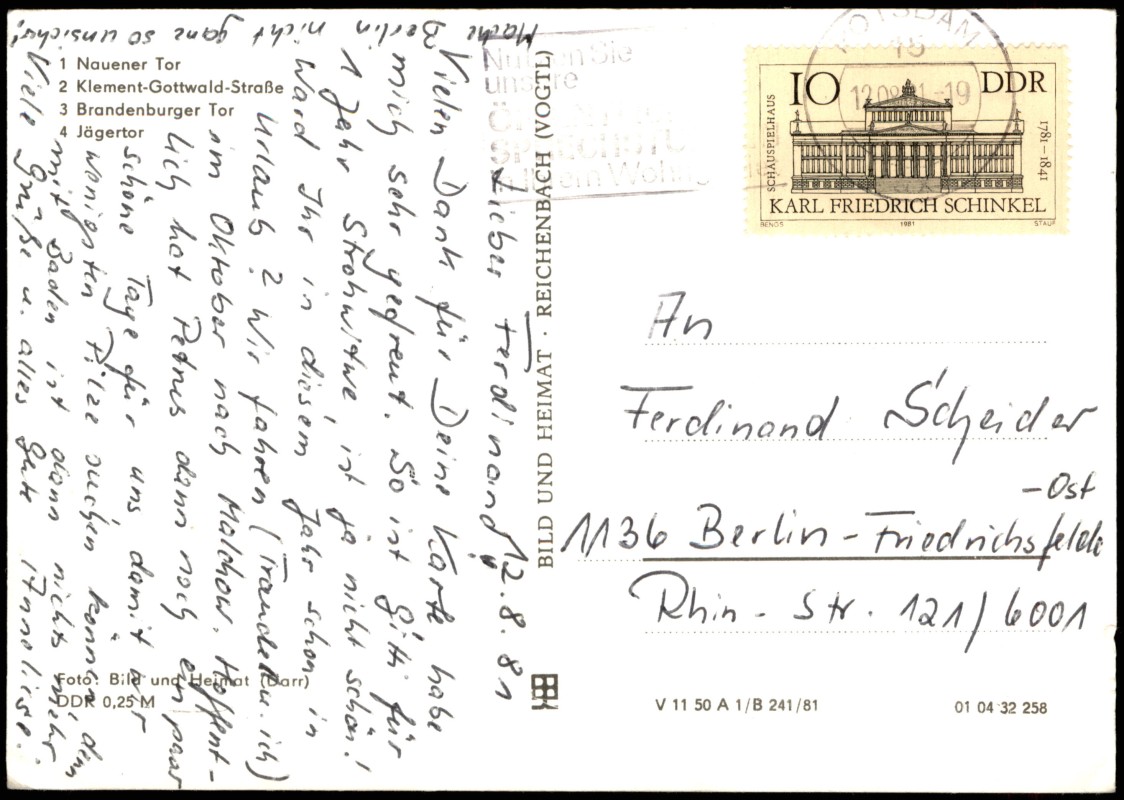 1 Nauener Tor
2 Klement-Gottwald-Straße
3 Brandenburger Tor
4 Jägertor
Lieber Ferdinand, 12.8.81
Vielen Dank für Deine Karte habe
mich sehr gefreut. So ist Gitti für
1 Jahr Strohwitwe, ist ja nicht schön!
Ward Ihr in diesem Jahr schon in
Urlaub? Wir fahren (Traudel u. ich)
im Oktober nach Malchow. Hoffent-
lich hat Petrus dann noch ein paar
schöne Tage für uns damit wir
wenigsten Pilze suchen können, denn
mit Baden ist dann nichts mehr.
Viele Grüße u. alles Gute Annoliese.
Mache Berlin nicht ganz so unsicher!
Foto: Bild und Heimat (Darr)
DDR 0,25 M
BILD UND HEIMAT · REICHENBACH (VOGTL)
Nutzen Sie
unsere
in Ihrem
POTSDAM
15
12.08.81-19
10 DDR
SCHAUSPIELHAUS
1781–1841
KARL FRIEDRICH SCHINKEL
BENGS 1981 STAUF
An
Ferdinand Scheider
-Ost
1136 Berlin-Friedrichsfelde
Rhin-Str. 121/6001
V 11 50 A 1/B 241/81
01 04 32 258